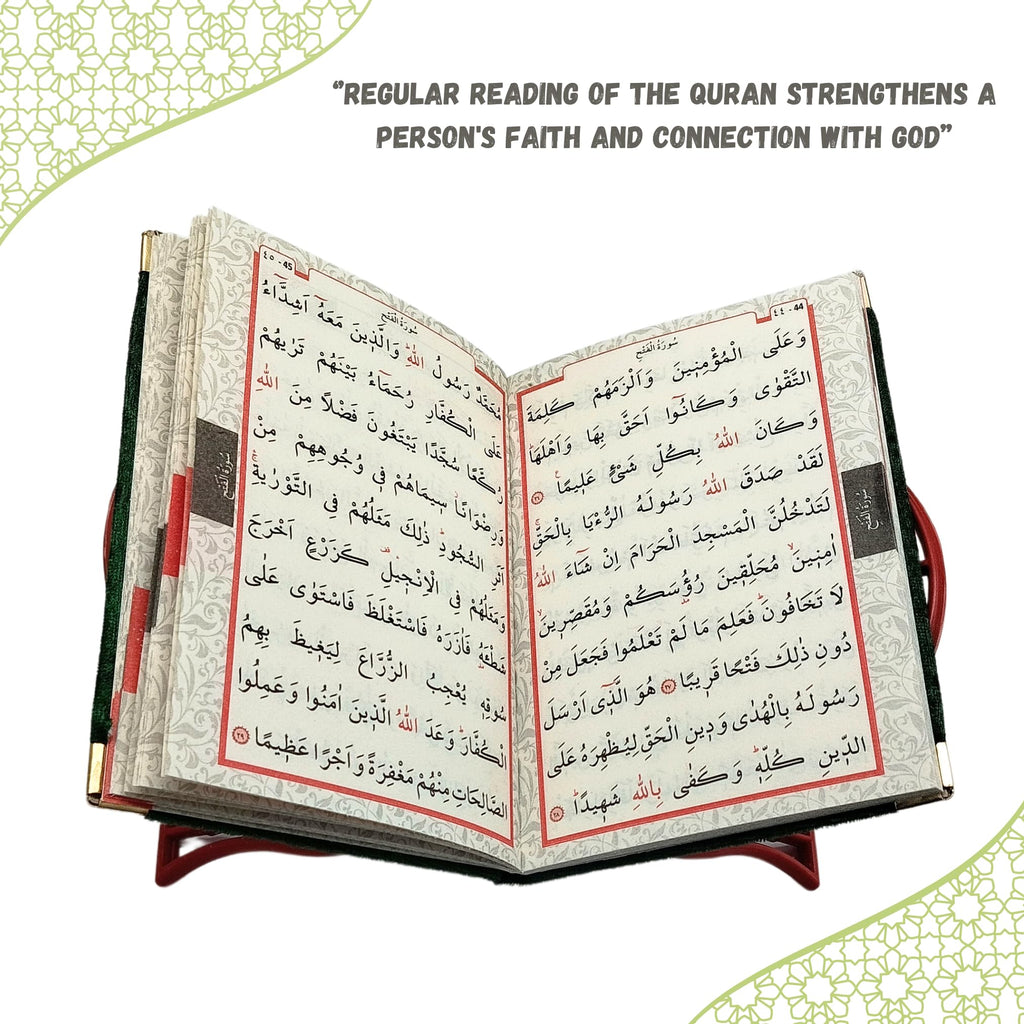 “REGULAR READING OF THE QURAN STRENGTHENS A
PERSON'S FAITH AND CONNECTION WITH GOD”
٤٤ - 44
سُورَةُ الْفَتْحِ
وَعَلَى الْمُؤْمِنٖينَ وَاَلْزَمَهُمْ كَلِمَةَ
التَّقْوٰى وَكَانُٓوا اَحَقَّ بِهَا وَاَهْلَهَاۜ
وَكَانَ اللّٰهُ بِكُلِّ شَیْءٍ عَلٖيمًاۚ ﴿٢٦﴾
لَقَدْ صَدَقَ اللّٰهُ رَسُولَهُ الرُّءْيَا بِالْحَقِّۚ
لَتَدْخُلُنَّ الْمَسْجِدَ الْحَرَامَ اِنْ شَٓاءَ اللّٰهُ
اٰمِنٖينَۙ مُحَلِّقٖينَ رُؤُ۫سَكُمْ وَمُقَصِّرٖينَۙ
لَا تَخَافُونَۜ فَعَلِمَ مَا لَمْ تَعْلَمُوا فَجَعَلَ مِنْ
دُونِ ذٰلِكَ فَتْحًا قَرٖيبًا ﴿٢٧﴾ هُوَ الَّذٖٓى اَرْسَلَ
رَسُولَهُ بِالْهُدٰى وَدٖينِ الْحَقِّ لِيُظْهِرَهُ عَلَى
الدّٖينِ كُلِّهٖۜ وَكَفٰى بِاللّٰهِ شَهٖيدًاۜ ﴿٢٨﴾
سُورَةُ الْفَتْحِ
٤٥ - 45
سُورَةُ الْفَتْحِ
مُحَمَّدٌ رَسُولُ اللّٰهِۜ وَالَّذٖينَ مَعَهُٓ اَشِدَّٓاءُ
عَلَى الْكُفَّارِ رُحَمَٓاءُ بَيْنَهُمْ تَرٰيهُمْ
رُكَّعًا سُجَّدًا يَبْتَغُونَ فَضْلًا مِنَ اللّٰهِ
وَرِضْوَانًاۘ سٖيمَاهُمْ فٖى وُجُوهِهِمْ مِنْ
اَثَرِ السُّجُودِۜ ذٰلِكَ مَثَلُهُمْ فِى التَّوْرٰيةِۚ
وَمَثَلُهُمْ فِى الْاِنْجٖيلِ۠ كَزَرْعٍ اَخْرَجَ
شَطْـَٔهُ فَاٰزَرَهُ فَاسْتَغْلَظَ فَاسْتَوٰى عَلٰى
سُوقِهٖ يُعْجِبُ الزُّرَّاعَ لِيَغٖيظَ بِهِمُ
الْكُفَّارَۜ وَعَدَ اللّٰهُ الَّذٖينَ اٰمَنُوا وَعَمِلُوا
الصَّالِحَاتِ مِنْهُمْ مَغْفِرَةً وَاَجْرًا عَظٖيمًا ﴿٢٩﴾
سُورَةُ الْفَتْحِ